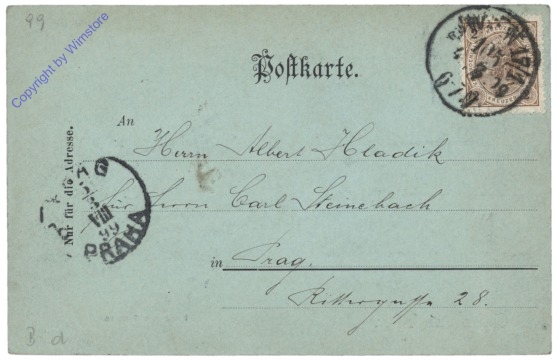 99
Copyright by Wimstore
Postkarte.
An
Herrn Albert Hladik
für Herrn Carl Steinebach
in Prag.
Rittergasse 28.
Nur für die Adresse.
VIII
99
PRAHA
B d